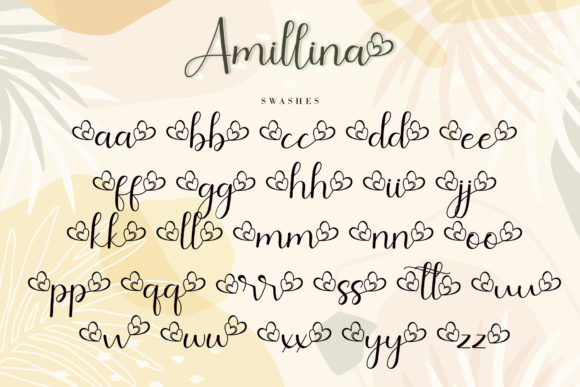 Amillina
SWASHES
aa bb cc dd ee
ff gg hh ii jj
kk ll mm nn oo
pp qq rr ss tt uu
vv ww xx yy zz